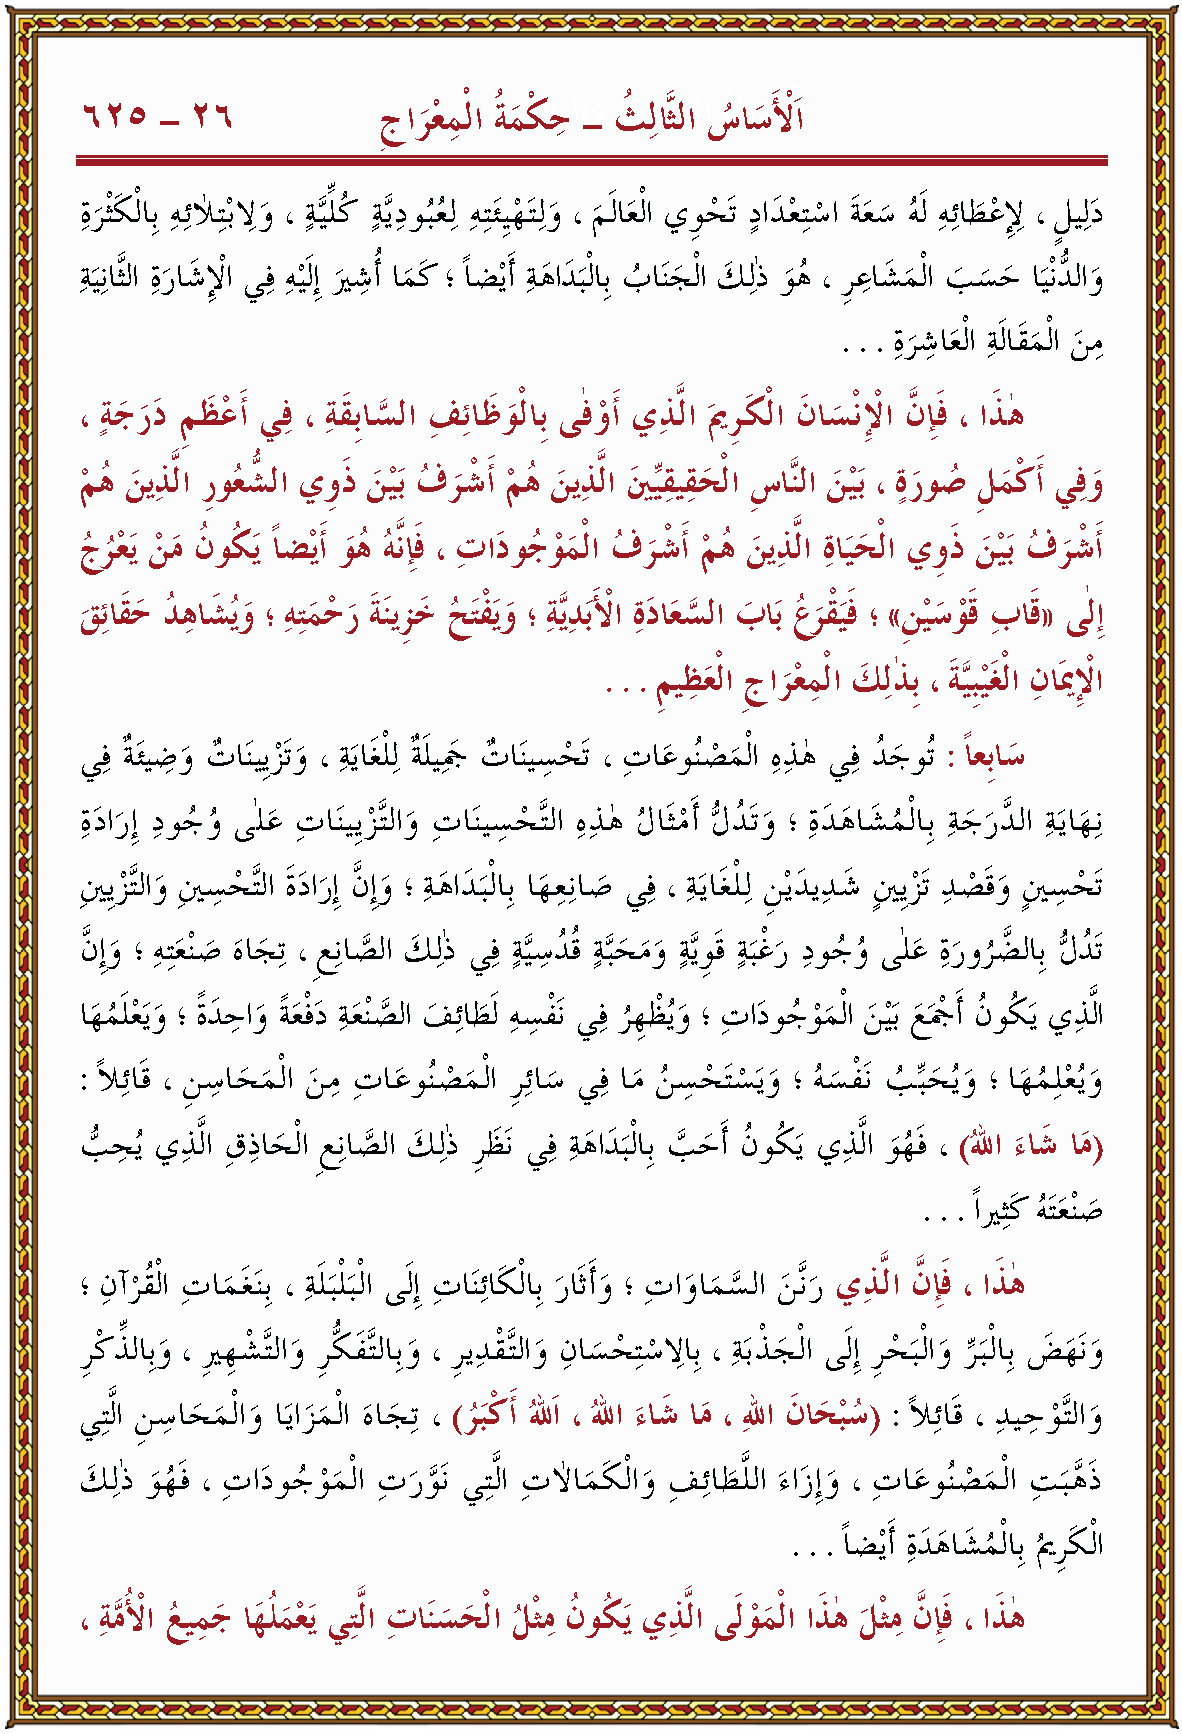 اَلْأَسَاسُ الثَّالِثُ ــ حِكْمَةُ الْمِعْرَاجِ ٢٦ ــ ٦٢٥
دَلِيلٍ ، لِإِعْطَائِهِ لَهُ سَعَةَ اسْتِعْدَادٍ تَحْوِي الْعَالَمَ ، وَلِتَهْيِئَتِهِ لِعُبُودِيَّةٍ كُلِّيَّةٍ ، وَلِابْتِلٰائِهِ بِالْكَثْرَةِ
وَالدُّنْيَا حَسَبَ الْمَشَاعِرِ ، هُوَ ذٰلِكَ الْجَنَابُ بِالْبَدَاهَةِ أَيْضاً ؛ كَمَا أُشِيرَ إِلَيْهِ فِي الْإِشَارَةِ الثَّانِيَةِ
مِنَ الْمَقَالَةِ الْعَاشِرَةِ . . .
هٰذَا ، فَإِنَّ الْإِنْسَانَ الْكَرِيمَ الَّذِي أَوْفٰى بِالْوَظَائِفِ السَّابِقَةِ ، فِي أَعْظَمِ دَرَجَةٍ ،
وَفِي أَكْمَلِ صُورَةٍ ، بَيْنَ النَّاسِ الْحَقِيقِيِّينَ الَّذِينَ هُمْ أَشْرَفُ بَيْنَ ذَوِي الشُّعُورِ الَّذِينَ هُمْ
أَشْرَفُ بَيْنَ ذَوِي الْحَيَاةِ الَّذِينَ هُمْ أَشْرَفُ الْمَوْجُودَاتِ ، فَإِنَّهُ هُوَ أَيْضاً يَكُونُ مَنْ يَعْرُجُ
إِلٰى «قَابِ قَوْسَيْنِ» ؛ فَيَقْرَعُ بَابَ السَّعَادَةِ الْأَبَدِيَّةِ ؛ وَيَفْتَحُ خَزِينَةَ رَحْمَتِهِ ؛ وَيُشَاهِدُ حَقَائِقَ
الْإِيمَانِ الْغَيْبِيَّةَ ، بِذٰلِكَ الْمِعْرَاجِ الْعَظِيمِ . . .
سَابِعاً : تُوجَدُ فِي هٰذِهِ الْمَصْنُوعَاتِ ، تَحْسِينَاتٌ جَمِيلَةٌ لِلْغَايَةِ ، وَتَزْيِينَاتٌ وَضِيئَةٌ فِي
نِهَايَةِ الدَّرَجَةِ بِالْمُشَاهَدَةِ ؛ وَتَدُلُّ أَمْثَالُ هٰذِهِ التَّحْسِينَاتِ وَالتَّزْيِينَاتِ عَلٰى وُجُودِ إِرَادَةِ
تَحْسِينٍ وَقَصْدِ تَزْيِينٍ شَدِيدَيْنِ لِلْغَايَةِ ، فِي صَانِعِهَا بِالْبَدَاهَةِ ؛ وَإِنَّ إِرَادَةَ التَّحْسِينِ وَالتَّزْيِينِ
تَدُلُّ بِالضَّرُورَةِ عَلٰى وُجُودِ رَغْبَةٍ قَوِيَّةٍ وَمَحَبَّةٍ قُدُسِيَّةٍ فِي ذٰلِكَ الصَّانِعِ ، تِجَاهَ صَنْعَتِهِ ؛ وَإِنَّ
الَّذِي يَكُونُ أَجْمَعَ بَيْنَ الْمَوْجُودَاتِ ؛ وَيُظْهِرُ فِي نَفْسِهِ لَطَائِفَ الصَّنْعَةِ دَفْعَةً وَاحِدَةً ؛ وَيَعْلَمُهَا
وَيُعْلِمُهَا ؛ وَيُحَبِّبُ نَفْسَهُ ؛ وَيَسْتَحْسِنُ مَا فِي سَائِرِ الْمَصْنُوعَاتِ مِنَ الْمَحَاسِنِ ، قَائِلاً :
(مَا شَاءَ اللهُ) ، فَهُوَ الَّذِي يَكُونُ أَحَبَّ بِالْبَدَاهَةِ فِي نَظَرِ ذٰلِكَ الصَّانِعِ الْحَاذِقِ الَّذِي يُحِبُّ
صَنْعَتَهُ كَثِيراً . . .
هٰذَا ، فَإِنَّ الَّذِي رَنَّنَ السَّمَاوَاتِ ؛ وَأَثَارَ بِالْكَائِنَاتِ إِلَى الْبَلْبَلَةِ ، بِنَغَمَاتِ الْقُرْآنِ ؛
وَنَهَضَ بِالْبَرِّ وَالْبَحْرِ إِلَى الْجَذْبَةِ ، بِالِاسْتِحْسَانِ وَالتَّقْدِيرِ ، وَبِالتَّفَكُّرِ وَالتَّشْهِيرِ ، وَبِالذِّكْرِ
وَالتَّوْحِيدِ ، قَائِلاً : (سُبْحَانَ اللهِ ، مَا شَاءَ اللهُ ، اَللهُ أَكْبَرُ) ، تِجَاهَ الْمَزَايَا وَالْمَحَاسِنِ الَّتِي
ذَهَّبَتِ الْمَصْنُوعَاتِ ، وَإِزَاءَ اللَّطَائِفِ وَالْكَمَالٰاتِ الَّتِي نَوَّرَتِ الْمَوْجُودَاتِ ، فَهُوَ ذٰلِكَ
الْكَرِيمُ بِالْمُشَاهَدَةِ أَيْضاً . . .
هٰذَا ، فَإِنَّ مِثْلَ هٰذَا الْمَوْلَى الَّذِي يَكُونُ مِثْلُ الْحَسَنَاتِ الَّتِي يَعْمَلُهَا جَمِيعُ الْأُمَّةِ ،